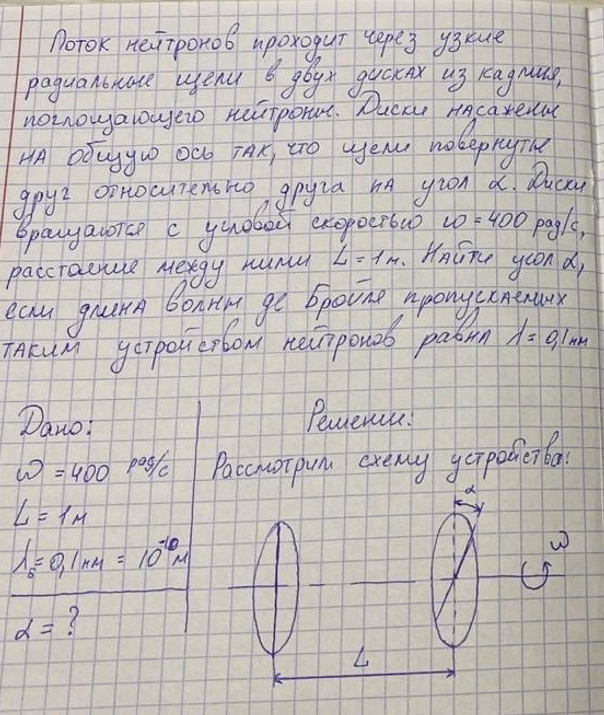 Поток нейтронов проходит через узкие
радиальные щели в двух дисках из кадмия,
поглощающего нейтроны. Диски насажены
на общую ось так, что щели повернуты
друг относительно друга на угол α. Диски
вращаются с угловой скоростью ω = 400 рад/с,
расстояние между ними L = 1 м. Найти угол α,
если длина волны де Бройля пропускаемых
таким устройством нейтронов равна λ = 0,1 нм
Дано:
ω = 400 рад/с
L = 1 м
λб = 0,1 нм = 10⁻¹⁰ м
α = ?
Решение:
Рассмотрим схему устройства:
α
ω
L